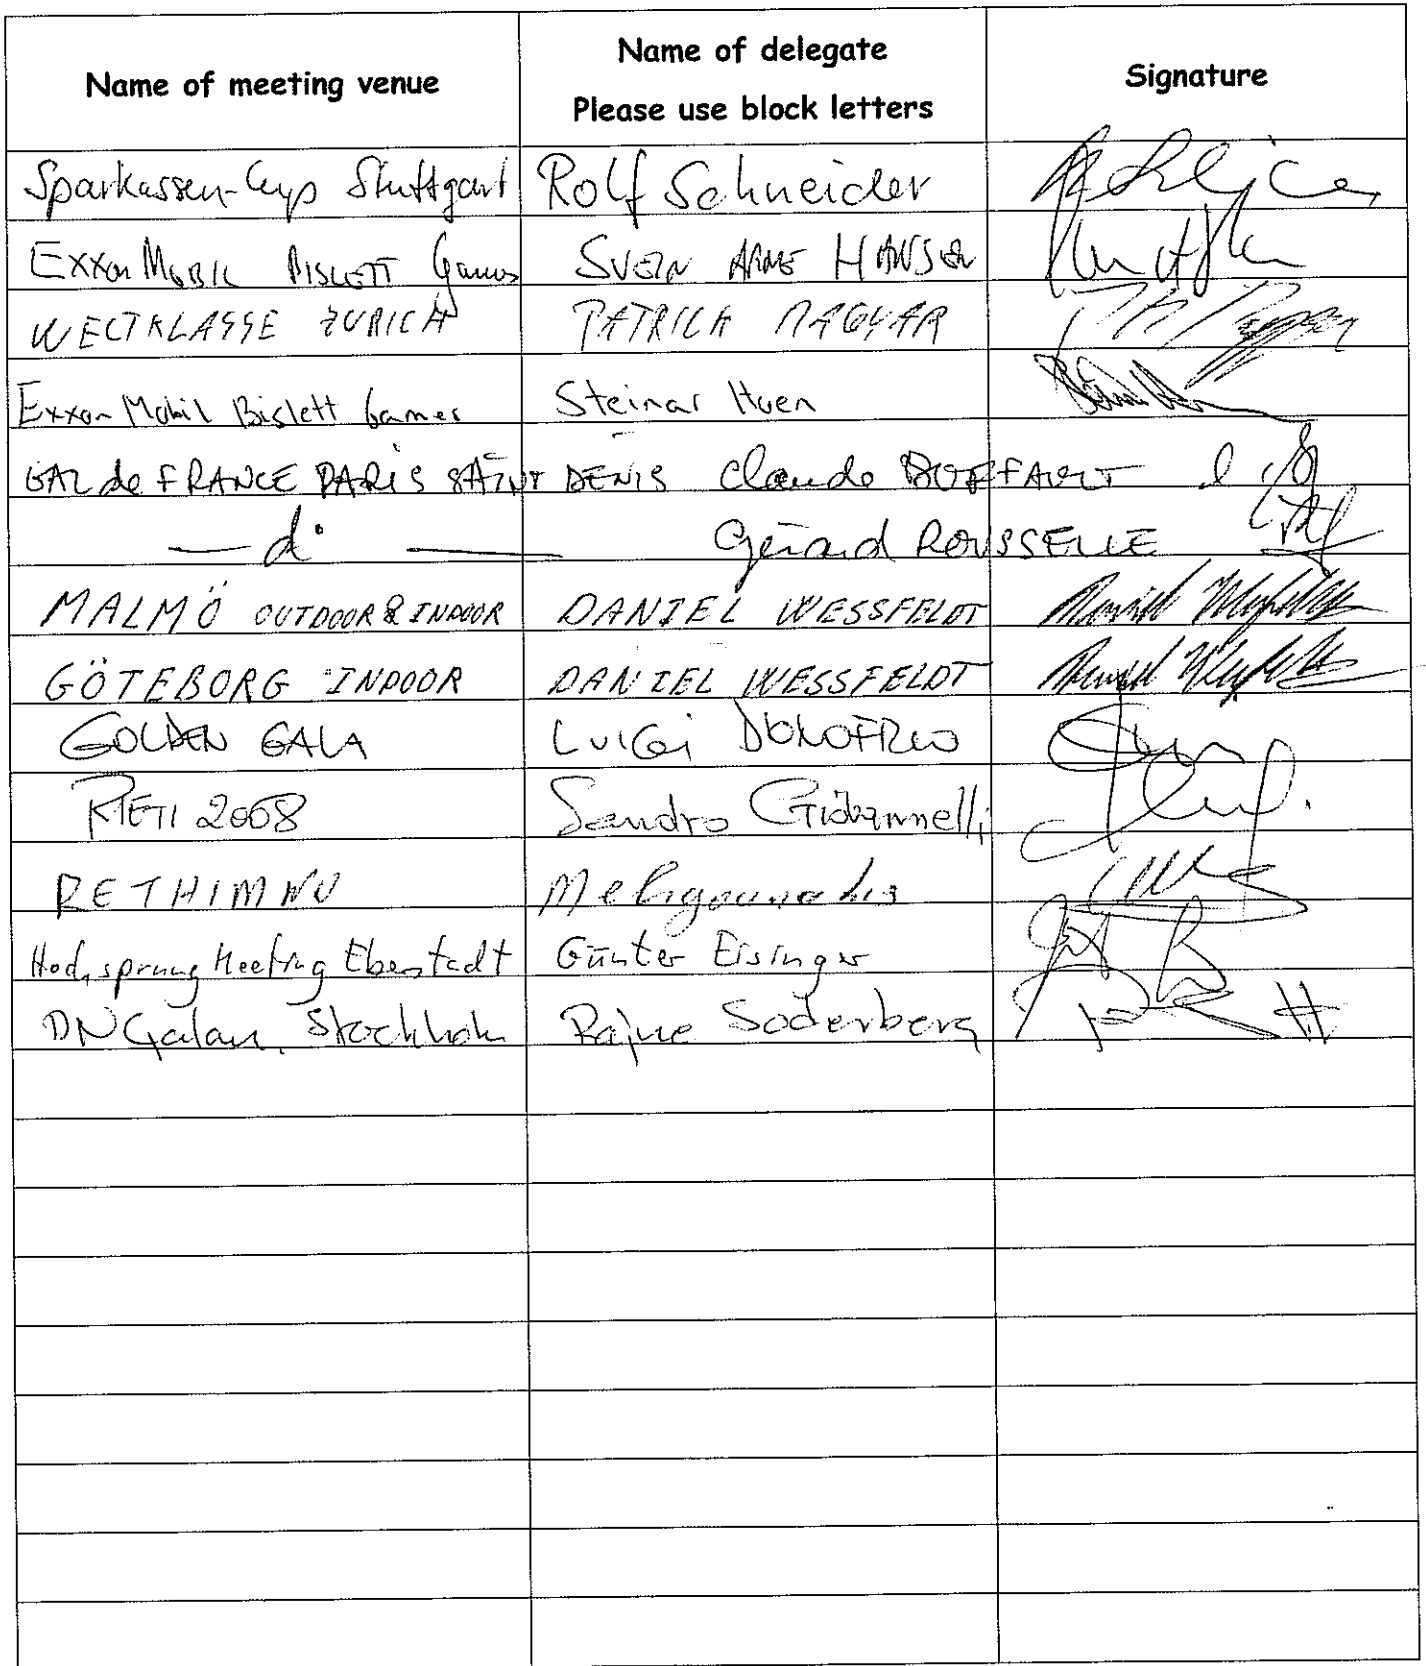 Name of meeting venue
Name of delegate
Please use block letters
Signature
Sparkassen-Cup Stuttgart Rolf Schneider
Exxon Mobil BISLETT Games SVEIN ARNE HANSEN
WELTKLASSE ZURICH PATRICK MAGYAR
Exxon Mobil Bislett Games Steinar Hoen
GAZ de FRANCE PARIS SAINT DENIS Claude
— d° — Gérard ROUSSELLE
MALMÖ OUTDOOR & INDOOR DANIEL WESSFELDT
GÖTEBORG INDOOR DANIEL WESSFELDT
GOLDEN GALA LUIGI D'ONOFRIO
RIETI 2008 Sandro Giovannelli
RETHIMNO
Hochsprung Meeting Eberstadt Günter Eisinger
DN Galan, Stockholm Rajne Söderberg